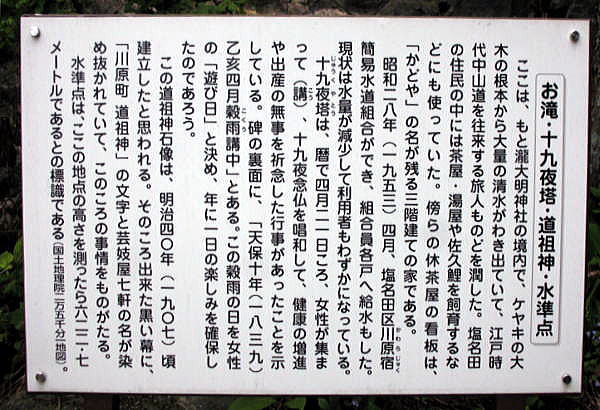 お滝・十九夜塔・道祖神・水準点
ここは、もと瀧大明神社の境内で、ケヤキの大
木の根本から大量の清水がわき出ていて、江戸時
代中山道を往来する旅人ものどを潤した。塩名田
の住民の中には茶屋・湯屋や佐久鯉を飼育するな
どにも使っていた。傍らの休茶屋の看板は、
「かどや」の名が残る三階建ての家である。
昭和二八年（一九五三）四月、塩名田区川原宿
かわらじゅく
簡易水道組合ができ、組合員各戸へ給水もした。
現状は水量が減少して利用者もわずかになっている。
じゅうくやとう
十九夜塔は、暦で四月二一日ころ、女性が集ま
こう
って（講）、十九夜念仏を唱和して、健康の増進
や出産の無事を祈念した行事があったことを示
している。碑の裏面に、「天保十年（一八三九）
こくう
乙亥四月穀雨講中」とある。この穀雨の日を女性
の「遊び日」と決め、年に一日の楽しみを確保し
たのであろう。
この道祖神石像は、明治四〇年（一九〇七）頃
建立したと思われる。そのころ出来た黒い幕に、
「川原町　道祖神」の文字と芸妓屋七軒の名が染
め抜かれていて、このころの事情をものがたる。
水準点は、ここの地点の高さを測ったら六二二・七
メートルであるとの標識である（国土地理院二万五千分一地図）。